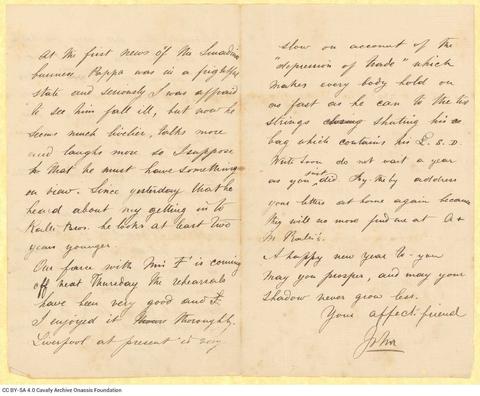 At the first news of the
business Pappa was in a frightful
state and seriously I was afraid
to see him fall ill, but now he
seems much livelier, talks more
and laughs more so I suppose
that he must have something
in view. Since yesterday that he
heard about my getting in to
Ralli Bros. he looks at least two
years younger.
Our farce with is coming
off next Thursday the rehearsals
have been very good and
I enjoyed it thoroughly.
Liverpool at present is very
slow on account of the
"depression of trade" which
makes every body hold on
as fast as he can to the
strings shuting his
bag which contains his L. S. D.
Write soon do not wait a year
as you did. By the by address
your letters at home again because
they will no more find me at A &
M Ralli's.
A happy new year to you
may you prosper, and may your
shadow never grow less.
Your affect: friend
John
CC BY-SA 4.0 Cavafy Archive Onassis Foundation